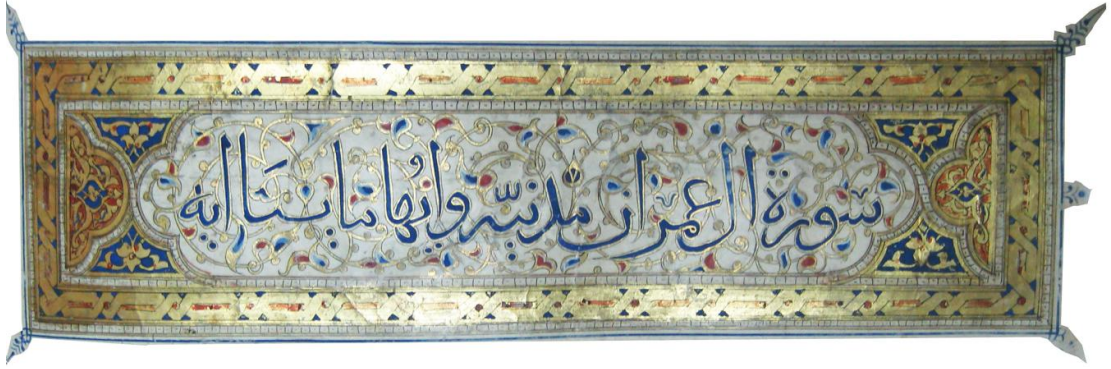 سورة ال عمران مدنية وايها مايتا اية